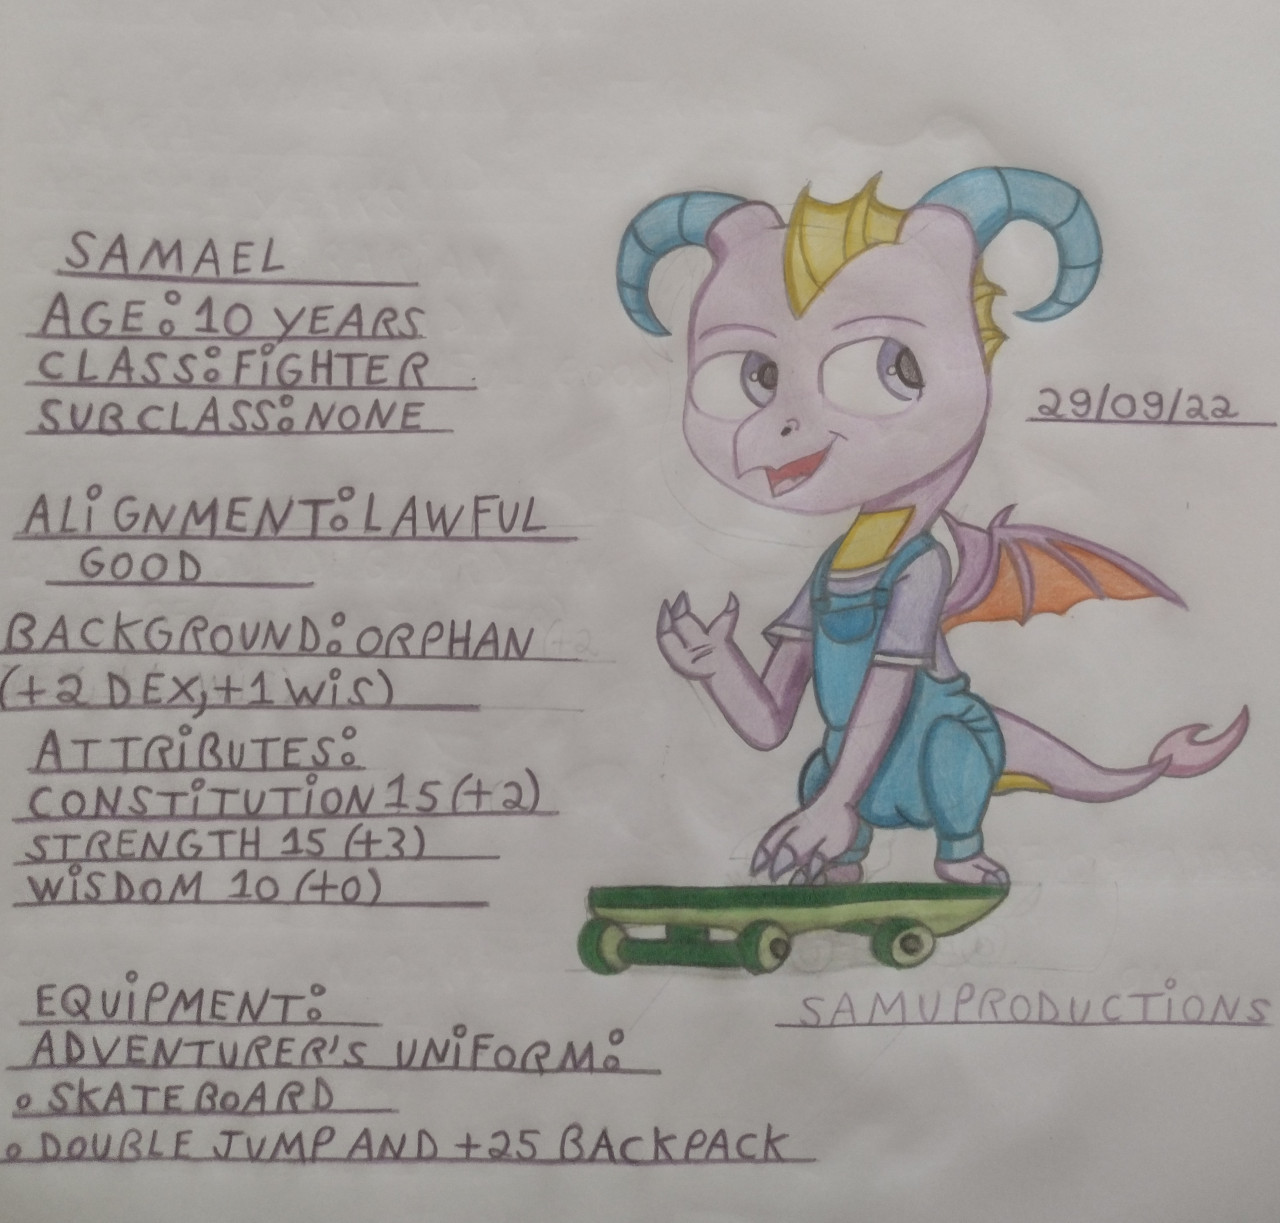 SAMAEL
AGE: 10 YEARS
CLASS: FiGHTER
SUBCLASS: NONE
29/09/22
ALiGNMENT: LAWFUL
GOOD
BACKGROUND: ORPHAN +2
(+2 DEX, +1 WiS)
ATTRiBUTES:
CONSTiTUTiON 15 (+2)
STRENGTH 15 (+3)
WiSDOM 10 (+0)
EQUiPMENT:
SAMUPRODUCTiONS
ADVENTURER'S UNiFORM:
• SKATEBOARD
• DOUBLE JUMP AND +25 BACKPACK